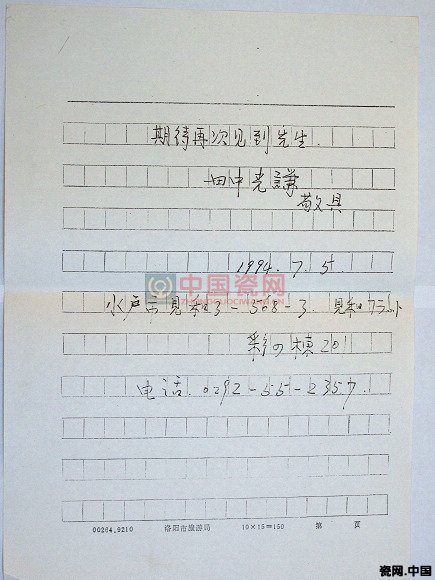 期待再次见到先生.
田中光謙
敬具
1994.7.5
中国瓷网
水戸市見和3-568-3. 見和フラット
彩の棟201
电话.0292-55-2357.
00264.9210 洛阳市旅游局 10×15=150 第 页
瓷网.中国